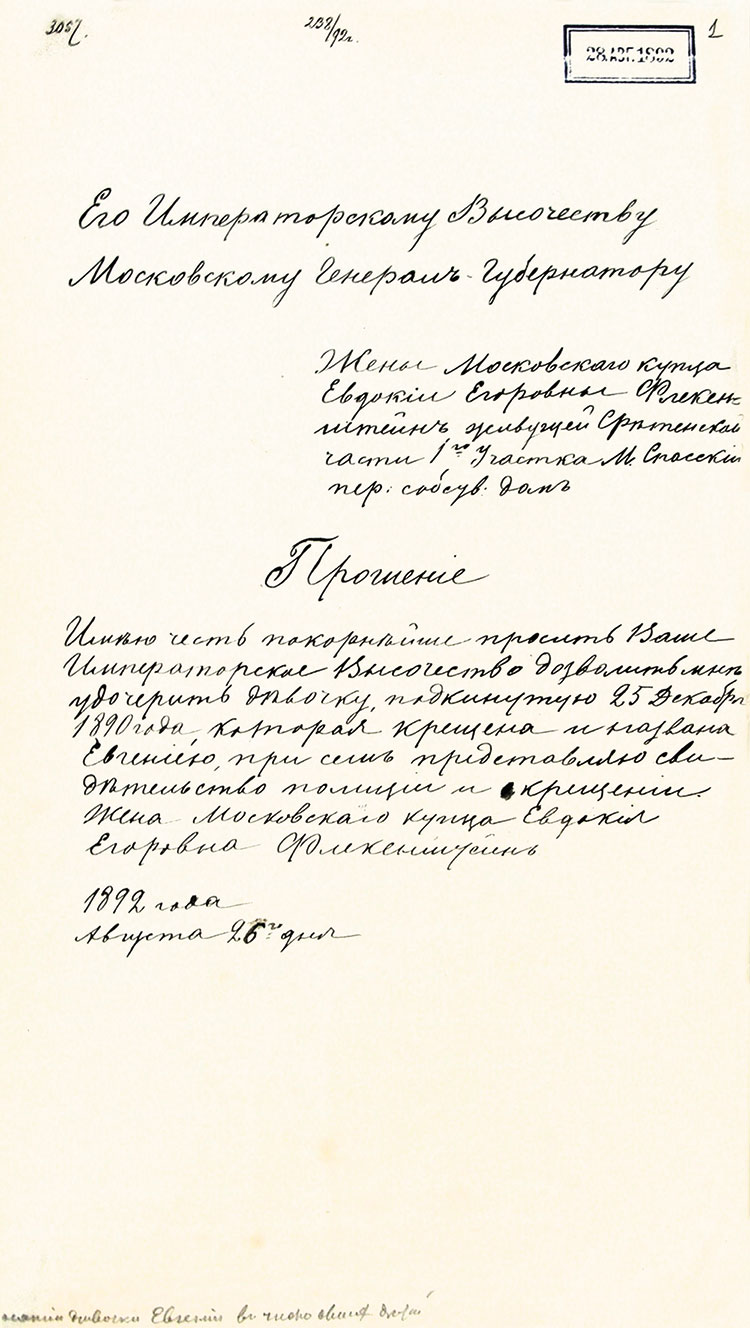 3057.
238/92г.
28.АВГ.1892
1
Его Императорскому Высочеству
Московскому Генералъ-Губернатору
Жены Московскаго купца
Евдокіи Егоровны Флекен-
штейнъ живущей Срѣтенской
части 1го Участка М. Спасскій
пер: собсув. домъ
Прошеніе
Имѣю честь покорнѣйше просить Ваше
Императорское Высочество дозволить мнѣ
удочерить дѣвочку, подкинутую 25 Декабря
1890 года, которая крещена и названа
Евгеніею, при семъ представляю сви-
дѣтельство полиціи и о крещеніи.
Жена Московскаго купца Евдокія
Егоровна Флекенштейнъ
1892 года
Августа 26го дня
дѣвочки Евгеніи въ число своихъ